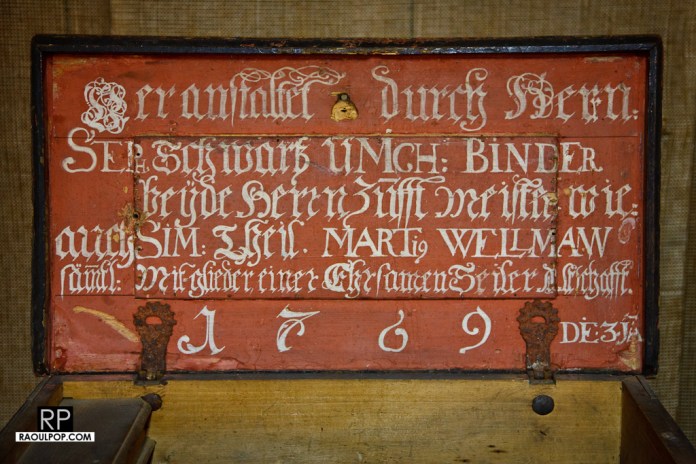 Veranstaltet durch Hern:
SEB: Schwartz U MCH: BINDER
beyde Herrn Zunfft Meister wie:
auch SIM: Theil. MART9 WELLMAN
sämtl: Mitglieder einer Ehrsamen Seiler
1769 DE: 3: JA
RP
RAOULPOP.COM